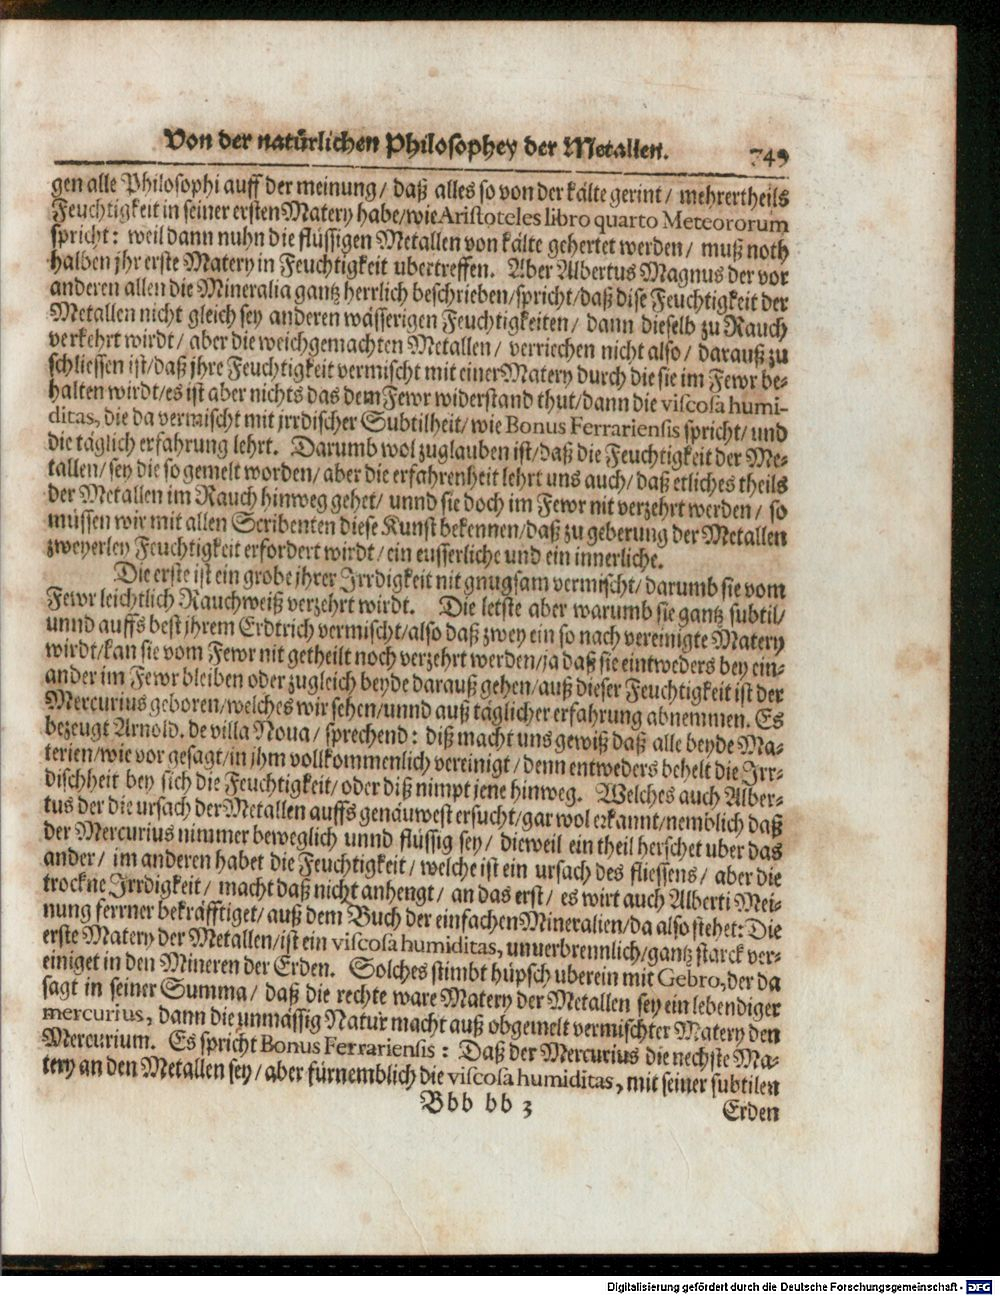 Von der natürlichen Philosophey der Metallen. 749
gen alle Philosophi auff der meinung/ daß alles so von der kälte gerint/ mehrertheils
Feuchtigkeit in seiner ersten Matery habe/wie Aristoteles libro quarto Meteororum
spricht: weil dann nuhn die flüssigen Metallen von kälte gehertet werden/ muß noth
halben jhr erste Matery in Feuchtigkeit ubertreffen. Aber Albertus Magnus der vor
anderen allen die Mineralia gantz herrlich beschrieben/spricht/daß dise Feuchtigkeit der
Metallen nicht gleich sey anderen wässerigen Feuchtigkeiten/ dann dieselb zu Rauch
verkehrt wirdt/ aber die weichgemachten Metallen/ verriechen nicht also/ darauß zu
schliessen ist/daß jhre Feuchtigkeit vermischt mit einer Matery durch die sie im Fewr be-
halten wirdt/es ist aber nichts das dem Fewr widerstand thut/dann die viscosa humi-
ditas, die da vermischt mit jrrdischer Subtilheit/ wie Bonus Ferrariensis spricht/ und
die täglich erfahrung lehrt. Darumb wol zuglauben ist/daß die Feuchtigkeit der Me-
tallen/ sey die so gemelt worden/ aber die erfahrenheit lehrt uns auch/ daß etliches theils
der Metallen im Rauch hinweg gehet/ unnd sie doch im Fewr nit verzehrt werden/ so
müssen wir mit allen Scribenten diese Kunst bekennen/daß zu geberung der Metallen
zweyerley Feuchtigkeit erfordert wirdt/ ein eusserliche und ein innerliche.
Die erste ist ein grobe jhrer Jrrdigkeit nit gnugsam vermischt/ darumb sie vom
Fewr leichtlich Rauchweiß verzehrt wirdt. Die letste aber warumb sie gantz subtil/
unnd auffs best jhrem Erdtrich vermischt/also daß zwey ein so nach vereinigte Matery
wirdt/kan sie vom Fewr nit getheilt noch verzehrt werden/ja daß sie eintweders bey ein-
ander im Fewr bleiben oder zugleich beyde darauß gehen/auß dieser Feuchtigkeit ist der
Mercurius geboren/welches wir sehen/unnd auß täglicher erfahrung abnemmen. Es
bezeugt Arnold. de villa Noua/ sprechend: diß macht uns gewiß daß alle beyde Ma-
terien/wie vor gesagt/in jhm vollkommenlich vereinigt/ denn entweders behelt die Jrr-
dischheit bey sich die Feuchtigkeit/ oder diß nimpt jene hinweg. Welches auch Alber-
tus der die ursach der Metallen auffs genäuwest ersucht/gar wol erkannt/nemblich daß
der Mercurius nimmer beweglich unnd flüssig sey/ dieweil ein theil herschet uber das
ander/ im anderen habet die Feuchtigkeit/ welche ist ein ursach des fliessens/ aber die
trockne Jrrdigkeit/ macht daß nicht anhengt/ an das erst/ es wirt auch Alberti Mei-
nung ferrner bekräfftiget/ auß dem Buch der einfachen Mineralien/da also stehet: Die
erste Matery der Metallen/ist ein viscosa humiditas, unuerbrennlich/gantz starck ver-
einiget in den Mineren der Erden. Solches stimbt hüpsch uberein mit Gebro, der da
sagt in seiner Summa/ daß die rechte ware Matery der Metallen sey ein lebendiger
mercurius, dann die unmässig Natur macht auß obgemelt vermischter Matery den
Mercurium. Es spricht Bonus Ferrariensis: Daß der Mercurius die nechste Ma-
tery an den Metallen sey/ aber fürnemblich die viscosa humiditas, mit seiner subtilen
Bbb bb 3 Erden
Digitalisierung gefördert durch die Deutsche Forschungsgemeinschaft - DFG